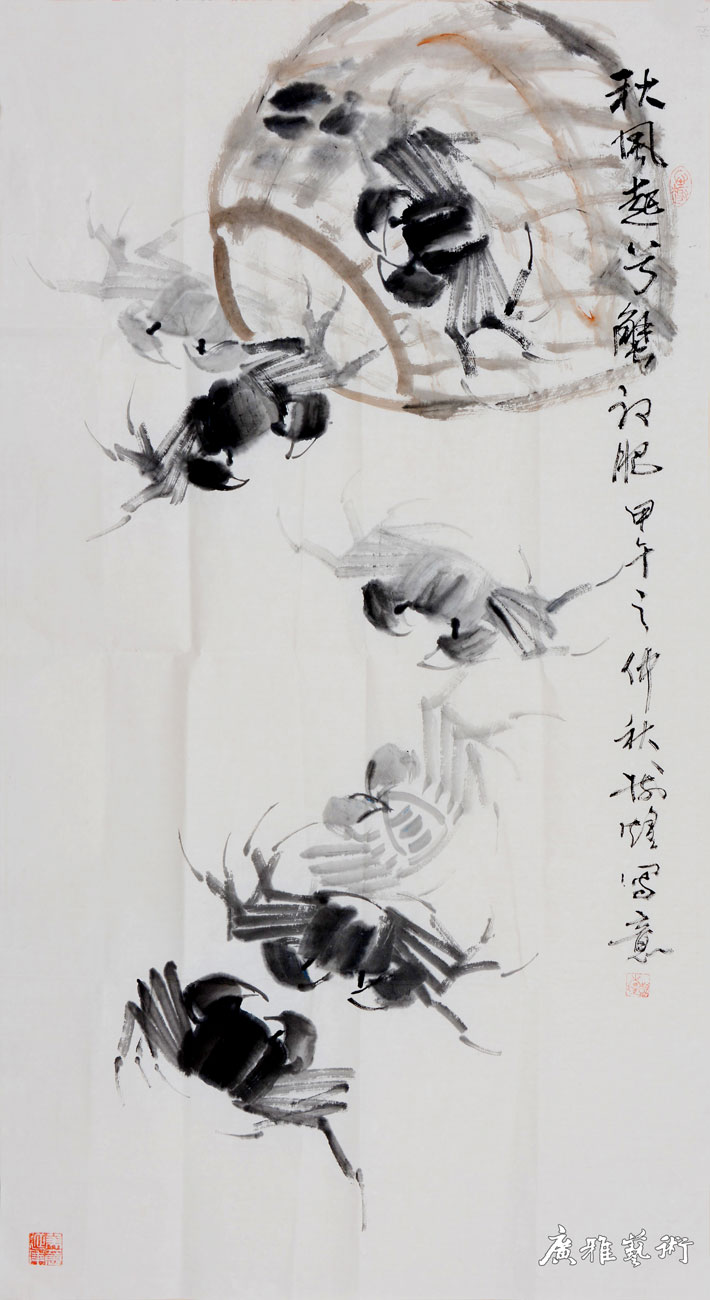 秋風起兮蟹初肥 甲午之仲秋 煌寫意
廣雅藝術